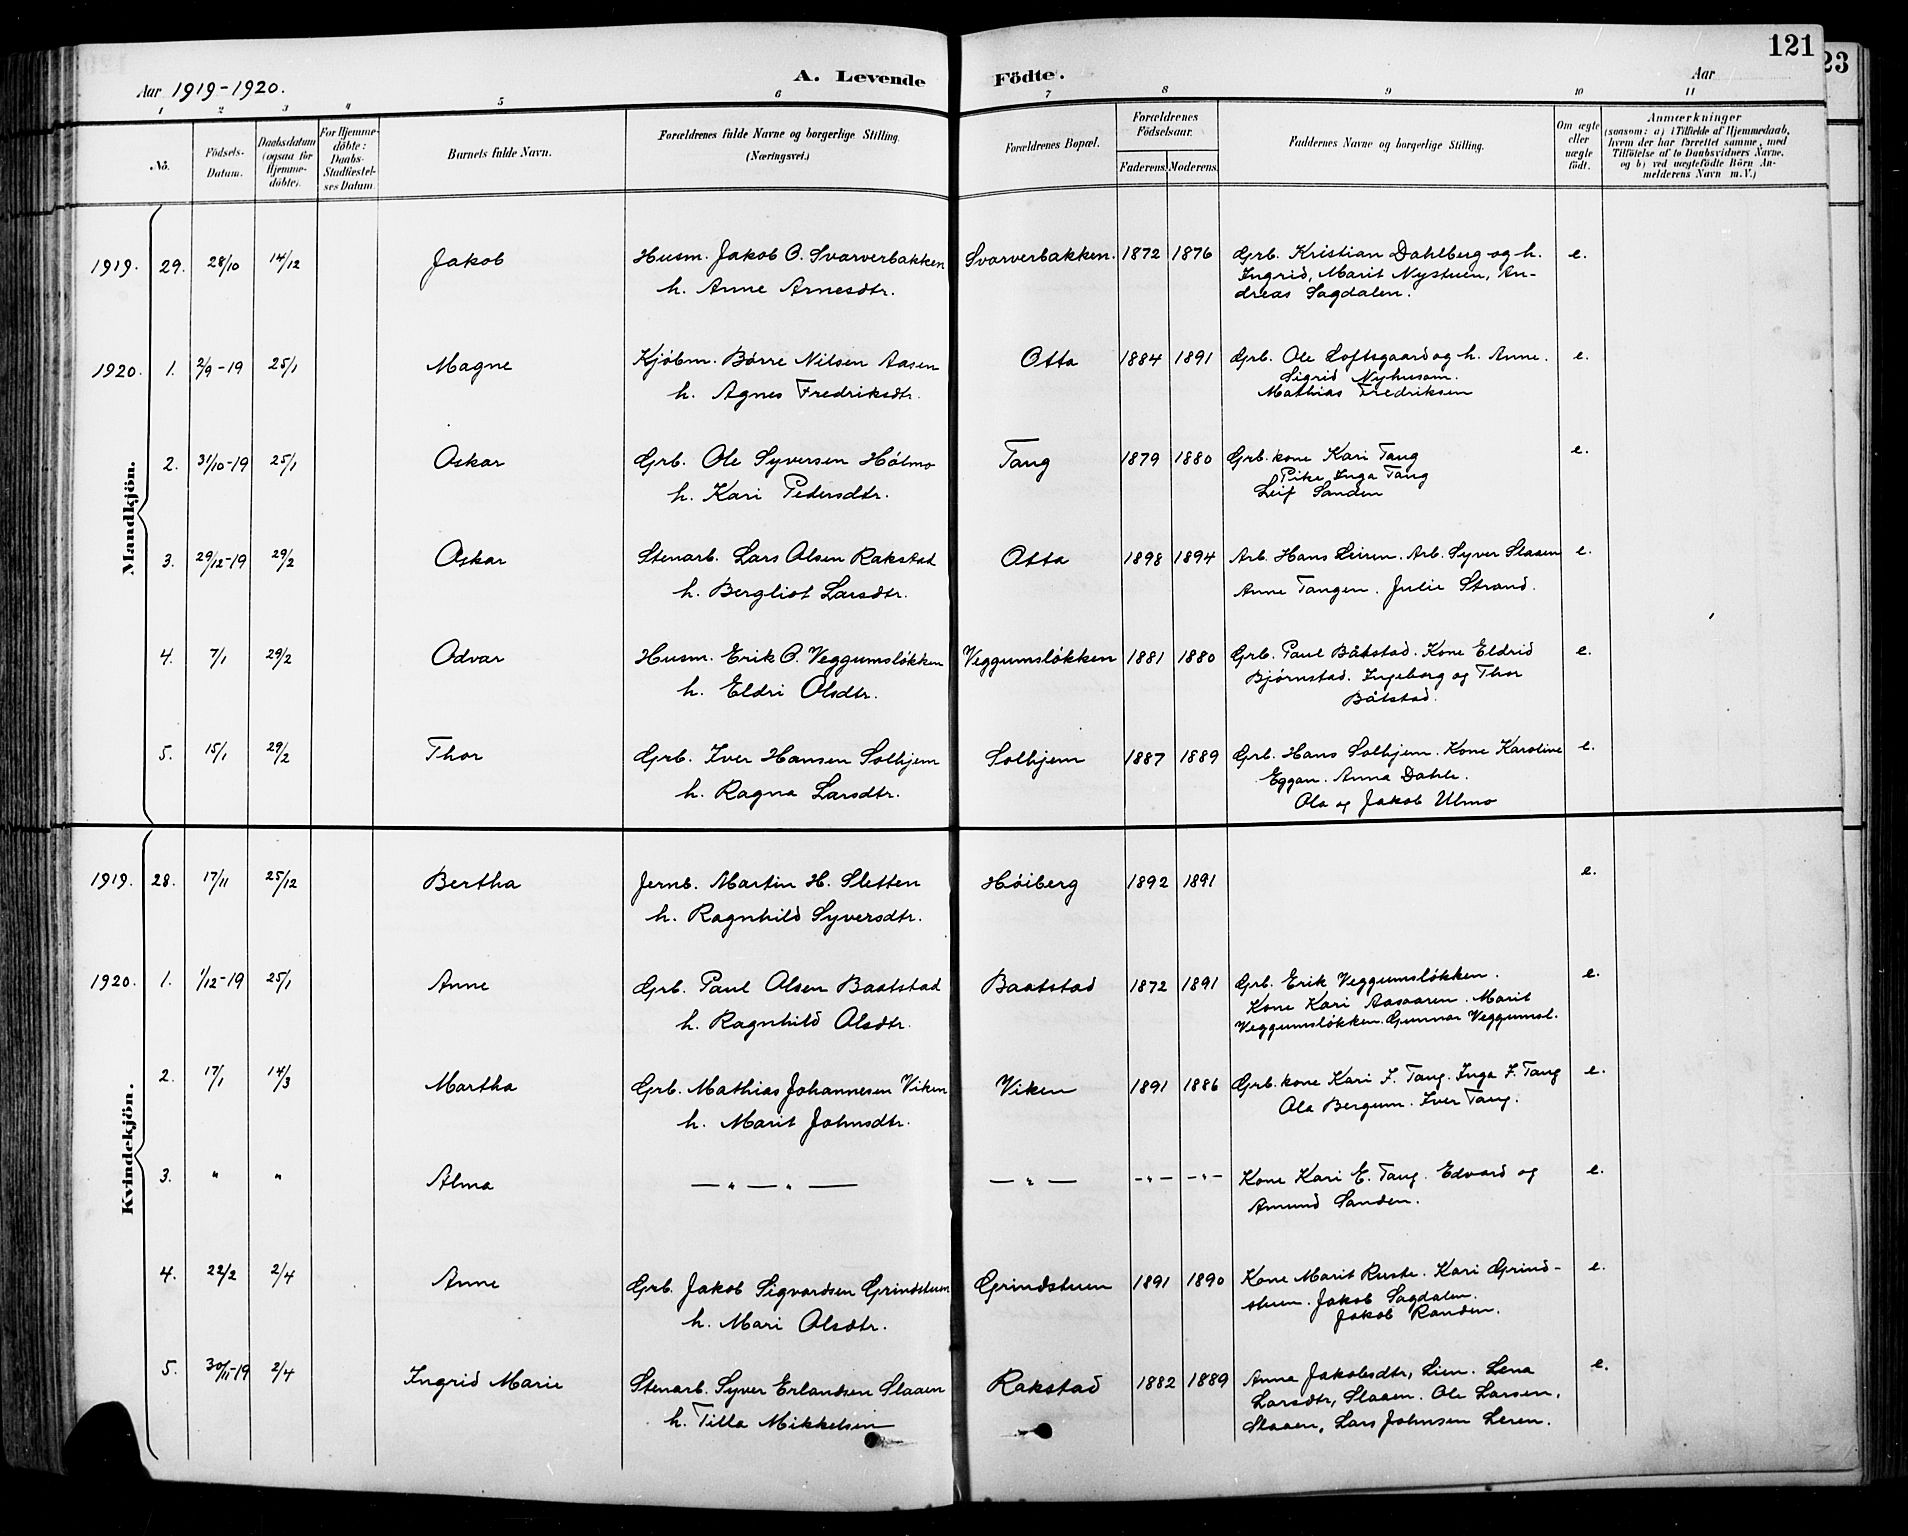 121
23
Aar 1919-1920.
A. Levende Födte.
Aar
1 2 3 4 5 6 7 8 9 10 11
No.
Födsels-Datum.
Daabsdatum (ogsaa for Hjemme-döbte).
For Hjemme-döbte: Daabs-Stadfæstel-ses Datum.
Barnets fulde Navn.
Forældrenes fulde Navne og borgerlige Stilling. (Næringsvei.)
Forældrenes Bopæl.
Forældrenes Födselsaar.
Faderens. Moderens.
Faddernes Navne og borgerlige Stilling.
Om ægte eller uægte födt.
Anmærkninger
(saasom: a) i Tilfælde af Hjemmedaab, hvem der har forrettet samme, med Tilföielse af to Daabsvidners Navne, og b) ved uægtefödte Börn An-melderens Navn m. V.)
Mandkjön.
1919. 29. 28/10 14/12 Jakob Husm. Jakob O. Svarverbakken Svarverbakken. 1872 1876 Grb. Kristian Dahlberg og h. e.
h. Anne Arnesdtr. Ingrid, Marit Nystuen, An-
dreas Sagdalen.
1920. 1. 2/9-19 25/1 Magne Kjøbm. Børre Nilsen Aasen Otta 1884 1891 Grb. Ole Loftsgaard og h. Anne. e.
h. Agnes Fredriksdtr. Sigrid Nyhusom.
Mathias Fredriksen
2. 31/10-19 25/1 Oskar Grb. Ole Syversen Hólmo Tang 1879 1880 Grb. kone Kari Tang e.
h. Kari Pedersdtr. Pike Inga Tang
Leif Sanden
3. 29/12-19 29/2 Oskar Stenarb. Lars Olsen Rakstad Otta 1898 1894 Arb. Hans Leiren. Arb. Syver Slaaen e.
h. Bergliot Larsdtr. Anne Tangen. Julie Strand.
4. 7/1 29/2 Odvar Husm. Erik O. Veggumsløkken Veggumsløkken 1881 1880 Grb. Paul Båtstad. Kone Eldrid e.
h. Eldri Olsdtr. Bjørnstad. Ingeborg og Thor
Båtstad.
5. 15/1 29/2 Thor Grb. Iver Hansen Solhjem Solhjem 1887 1889 Grb. Hans Solhjem. Kone Karoline e.
h. Ragna Larsdtr. Eggan. Anna Dahle.
Ola og Jakob Ulmo
Kvindekjön.
1919. 28. 17/11 25/12 Bertha Jernb. Martin H. Sletten Høiberg 1892 1891 e.
h. Ragnhild Syversdtr.
1920. 1. 1/12-19 25/1 Anne Grb. Paul Olsen Baatstad Baatstad 1872 1891 Grb. Erik Veggumsløkken. e.
h. Ragnhild Olsdtr. Kone Kari Aasaaren. Marit
Veggumsløkken. Gunnar Veggumsl.
2. 17/1 14/3 Martha Grb. Mathias Johannesen Viken Viken 1891 1886 Grb. kone Kari I. Tang. Inga I. Tang e.
h. Marit Johnsdtr. Ola Bergum. Iver Tang.
3. " " Alma — " — " — — " — - " - - " - Kone Kari E. Tang. Edvard og e.
Amund Sanden.
4. 22/2 2/4 Anne Grb. Jakob Sigvardsen Grindstuen Grindstuen 1891 1890 Kone Marit Ruste. Kari Grind- e.
h. Mari Olsdtr. stuen. Jakob Sagdalen.
Jakob Randen.
5. 30/11-19 2/4 Ingrid Marie Stenarb. Syver Erlandsen Slaaen Rakstad 1882 1889 Anna Jakobsdtr, Lien. Lena e.
h. Tilla Mikkelsen Larsdtr, Slaaen. Ole Larsen,
Slaaen, Lars Johnsen Leren.